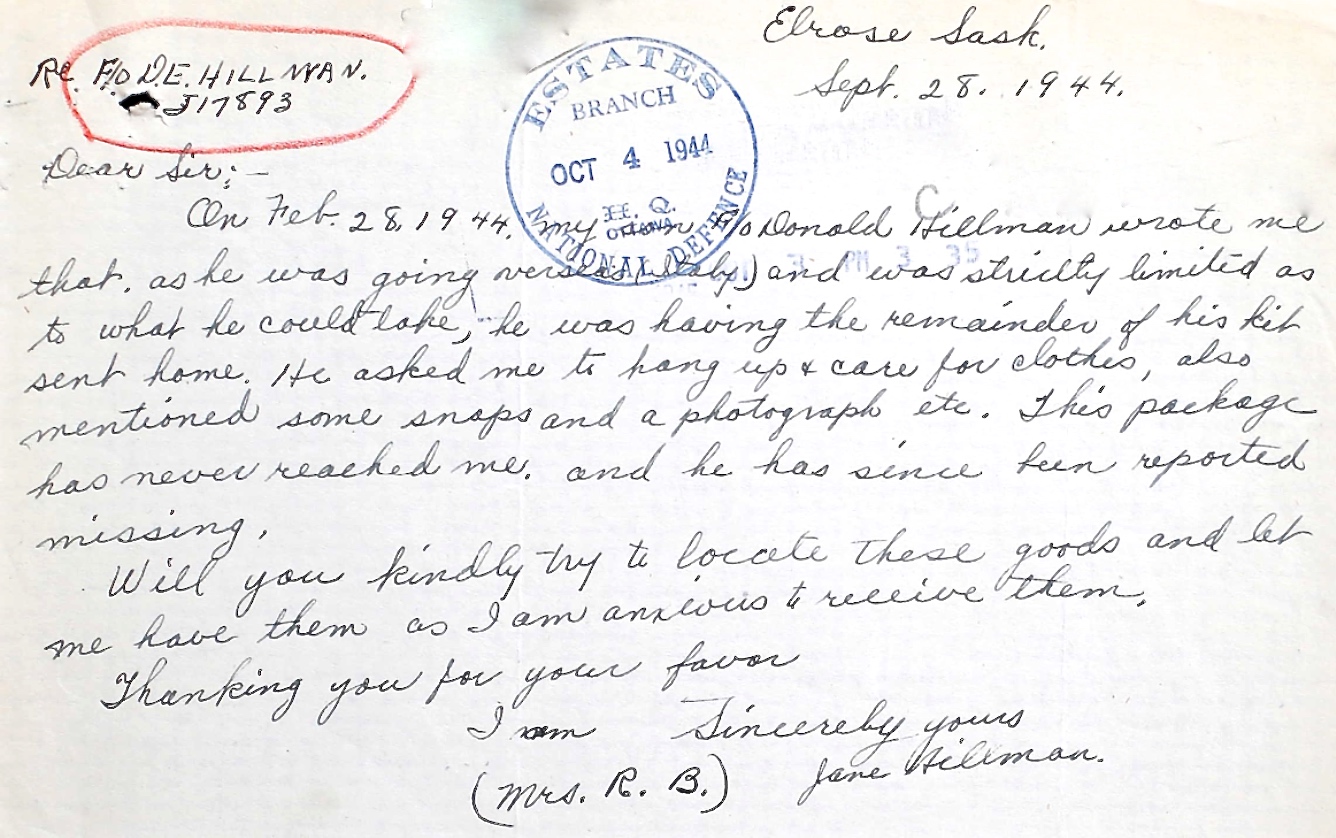 Elrose Sask.
Sept. 28. 1944.
Re F/O D.E. HILLMAN.
J17893
ESTATES
BRANCH
OCT 4 1944
H. Q.
OTTAWA
NATIONAL DEFENCE
Dear Sir; –
On Feb. 28, 1944, my son F/O Donald Hillman wrote me
that. as he was going overseas (Italy) and was strictly limited as
to what he could take, he was having the remainder of his kit
sent home. He asked me to hang up & care for clothes, also
mentioned some snaps and a photograph etc. This package
has never reached me. and he has since been reported
missing.
Will you kindly try to locate these goods and let
me have them as I am anxious to receive them.
Thanking you for your favor
I am Sincerely yours
(Mrs. R. B.) Jane Hillman.